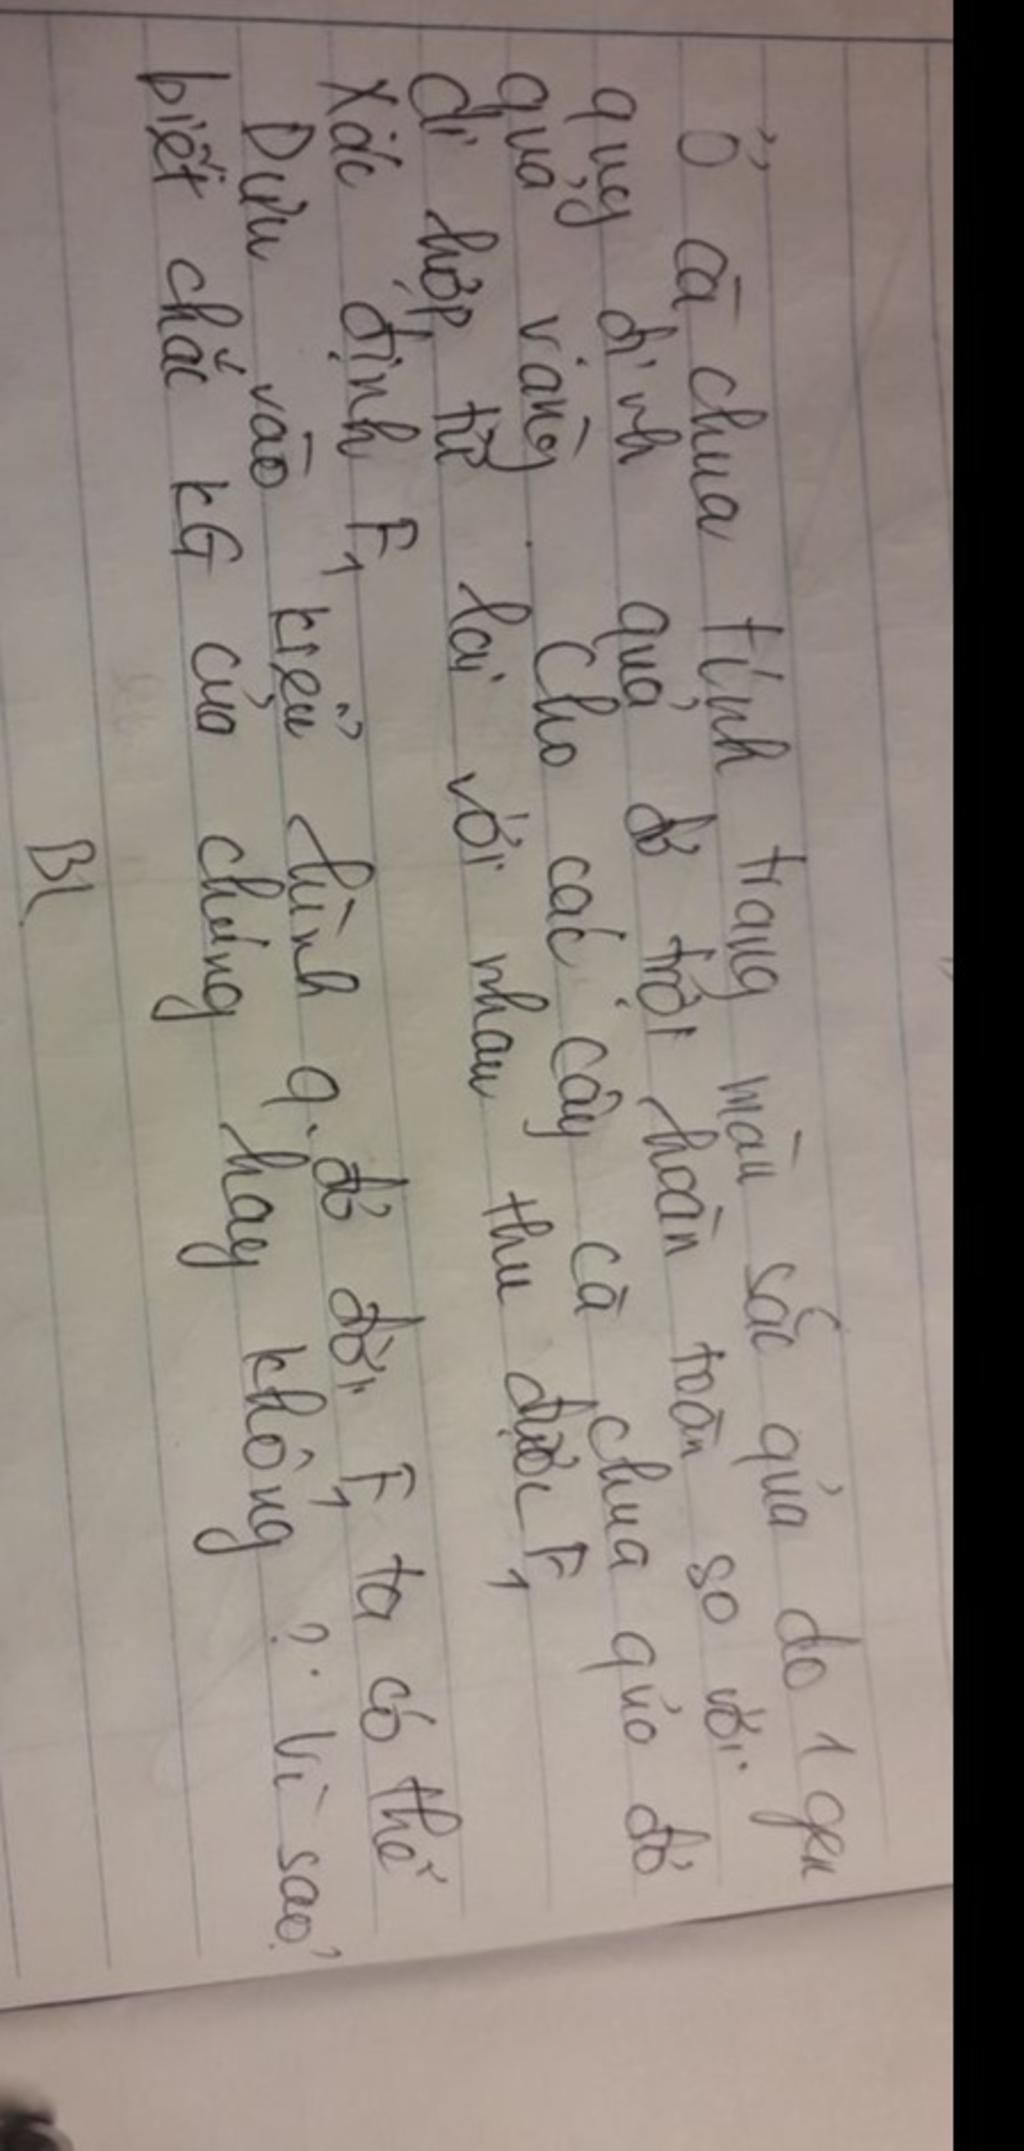 Ở cà chua tính trạng màu sắc quả do 1 gen
quy định quả đỏ trội hoàn toàn so với.
quả vàng. Cho các cây cà chua quả đỏ
dị hợp tử lai với nhau thu được F1
Xác định F1
Dựa vào kiểu hình q. đỏ đời F1 ta có thể
biết chắc KG của chúng hay không? Vì sao?
BL